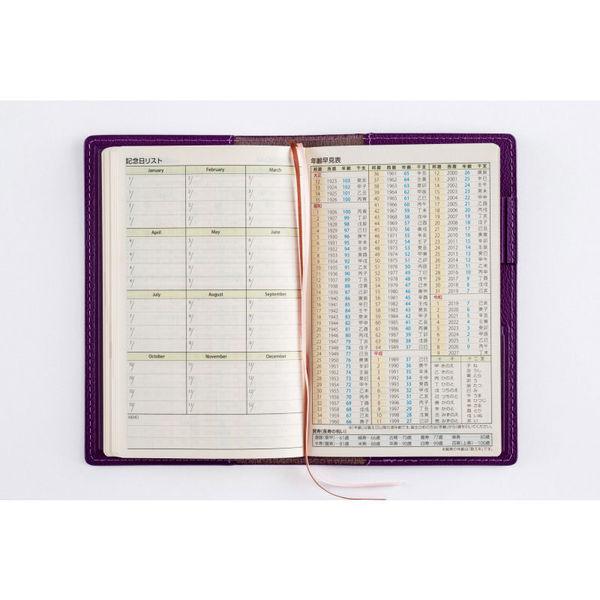 記念日リスト
January February March
April May June
July August September
October November December
MEMO
年齢早見表
邦暦 西暦 年齢 干支
大正
12 1923 103 癸亥
13 1924 102 甲子
14 1925 101 乙丑
15 1926 100 丙寅
昭和
1 1926 100 丙寅
2 1927 99 丁卯
3 1928 98 戊辰
4 1929 97 己巳
5 1930 96 庚午
6 1931 95 辛未
7 1932 94 壬申
8 1933 93 癸酉
9 1934 92 甲戌
10 1935 91 乙亥
11 1936 90 丙子
12 1937 89 丁丑
13 1938 88 戊寅
14 1939 87 己卯
15 1940 86 庚辰
16 1941 85 辛巳
17 1942 84 壬午
18 1943 83 癸未
19 1944 82 甲申
20 1945 81 乙酉
21 1946 80 丙戌
22 1947 79 丁亥
23 1948 78 戊子
24 1949 77 己丑
25 1950 76 庚寅
26 1951 75 辛卯
27 1952 74 壬辰
28 1953 73 癸巳
29 1954 72 甲午
30 1955 71 乙未
31 1956 70 丙申
32 1957 69 丁酉
33 1958 68 戊戌
34 1959 67 己亥
35 1960 66 庚子
邦暦 西暦 年齢 干支
36 1961 65 辛丑
37 1962 64 壬寅
38 1963 63 癸卯
39 1964 62 甲辰
40 1965 61 乙巳
41 1966 60 丙午
42 1967 59 丁未
43 1968 58 戊申
44 1969 57 己酉
45 1970 56 庚戌
46 1971 55 辛亥
47 1972 54 壬子
48 1973 53 癸丑
49 1974 52 甲寅
50 1975 51 乙卯
51 1976 50 丙辰
52 1977 49 丁巳
53 1978 48 戊午
54 1979 47 己未
55 1980 46 庚申
56 1981 45 辛酉
57 1982 44 壬戌
58 1983 43 癸亥
59 1984 42 甲子
60 1985 41 乙丑
61 1986 40 丙寅
62 1987 39 丁卯
63 1988 38 戊辰
64 1989 37 己巳
平成
1 1989 37 己巳
2 1990 36 庚午
3 1991 35 辛未
4 1992 34 壬申
5 1993 33 癸酉
6 1994 32 甲戌
7 1995 31 乙亥
8 1996 30 丙子
9 1997 29 丁丑
10 1998 28 戊寅
11 1999 27 己卯
邦暦 西暦 年齢 干支
12 2000 26 庚辰
13 2001 25 辛巳
14 2002 24 壬午
15 2003 23 癸未
16 2004 22 甲申
17 2005 21 乙酉
18 2006 20 丙戌
19 2007 19 丁亥
20 2008 18 戊子
21 2009 17 己丑
22 2010 16 庚寅
23 2011 15 辛卯
24 2012 14 壬辰
25 2013 13 癸巳
26 2014 12 甲午
27 2015 11 乙未
28 2016 10 丙申
29 2017 9 丁酉
30 2018 8 戊戌
31 2019 7 己亥
令和
1 2019 7 己亥
2 2020 6 庚子
3 2021 5 辛丑
4 2022 4 壬寅
5 2023 3 癸卯
6 2024 2 甲辰
7 2025 1 乙巳
8 2026 0 丙午
9 2027 丁未
十干 十二支
甲 きのえ 子 ね
乙 きのと 丑 うし
丙 ひのえ 寅 とら
丁 ひのと 卯 う
戊 つちのえ 辰 たつ
己 つちのと 巳 み
庚 かのえ 午 うま
辛 かのと 未 ひつじ
壬 みずのえ 申 さる
癸 みずのと 酉 とり
戌 いぬ
亥 い
賀寿(長寿の祝い)